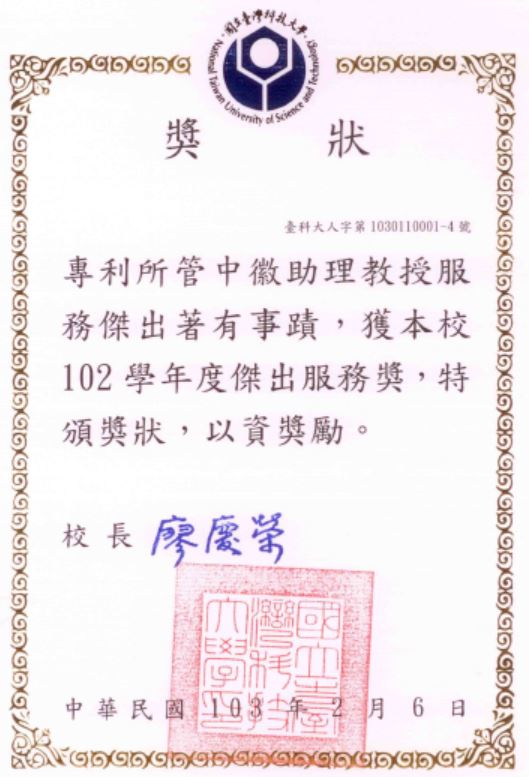 國立臺灣科技大學
National Taiwan University of Science and Technology
獎 狀
臺科大人字第1030110001-4號
專利所管中徽助理教授服
務傑出著有事蹟，獲本校
102學年度傑出服務獎，特
頒獎狀，以資獎勵。
校長 廖慶榮
國立臺
灣科技
大學印
中華民國 103 年 2 月 6 日